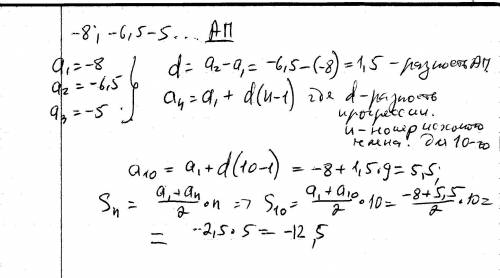 -8; -6,5 -5 ... АП
a₁ = -8
a₂ = -6,5
a₃ = -5
d = a₂ - a₁ = -6,5 - (-8) = 1,5 - разность АП
aₙ = a₁ + d(n-1) где d - разность
прогрессии.
n - номер искомого
члена. для 10-го
a₁₀ = a₁ + d(10-1) = -8 + 1,5 · 9 = 5,5;
Sₙ = (a₁ + aₙ)/2 · n => S₁₀ = (a₁ + a₁₀)/2 · 10 = (-8 + 5,5)/2 · 10 =
= -2,5 · 5 = -12,5